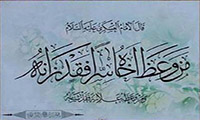 قال الامام العسكري عليه السلام
من وعظ أخاه سرا فقد زانه